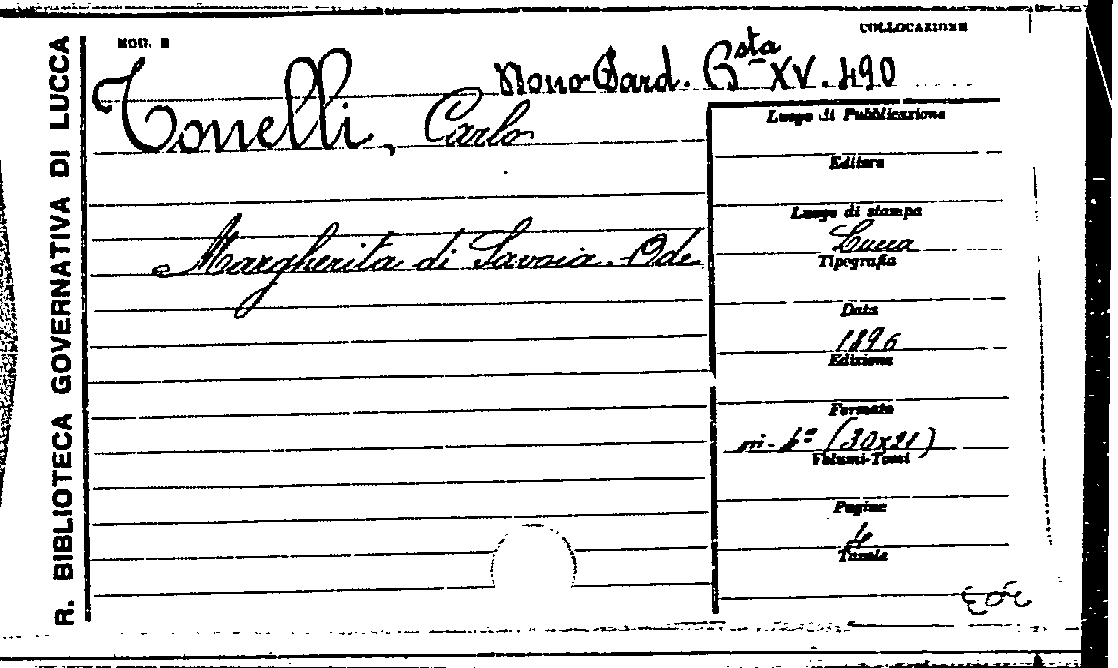 R. BIBLIOTECA GOVERNATIVA DI LUCCA
MOD. B
COLLOCAZIONE
Bsta XV. 490
Tonelli, Carlo
Margherita di Savoia. Ode
Luogo di Pubblicazione
Editore
Luogo di stampa
Lucca
Tipografia
Data
1896
Edizione
Formato
in-4º (30x21)
Volumi-Tomi
Pagine
4
Tavole